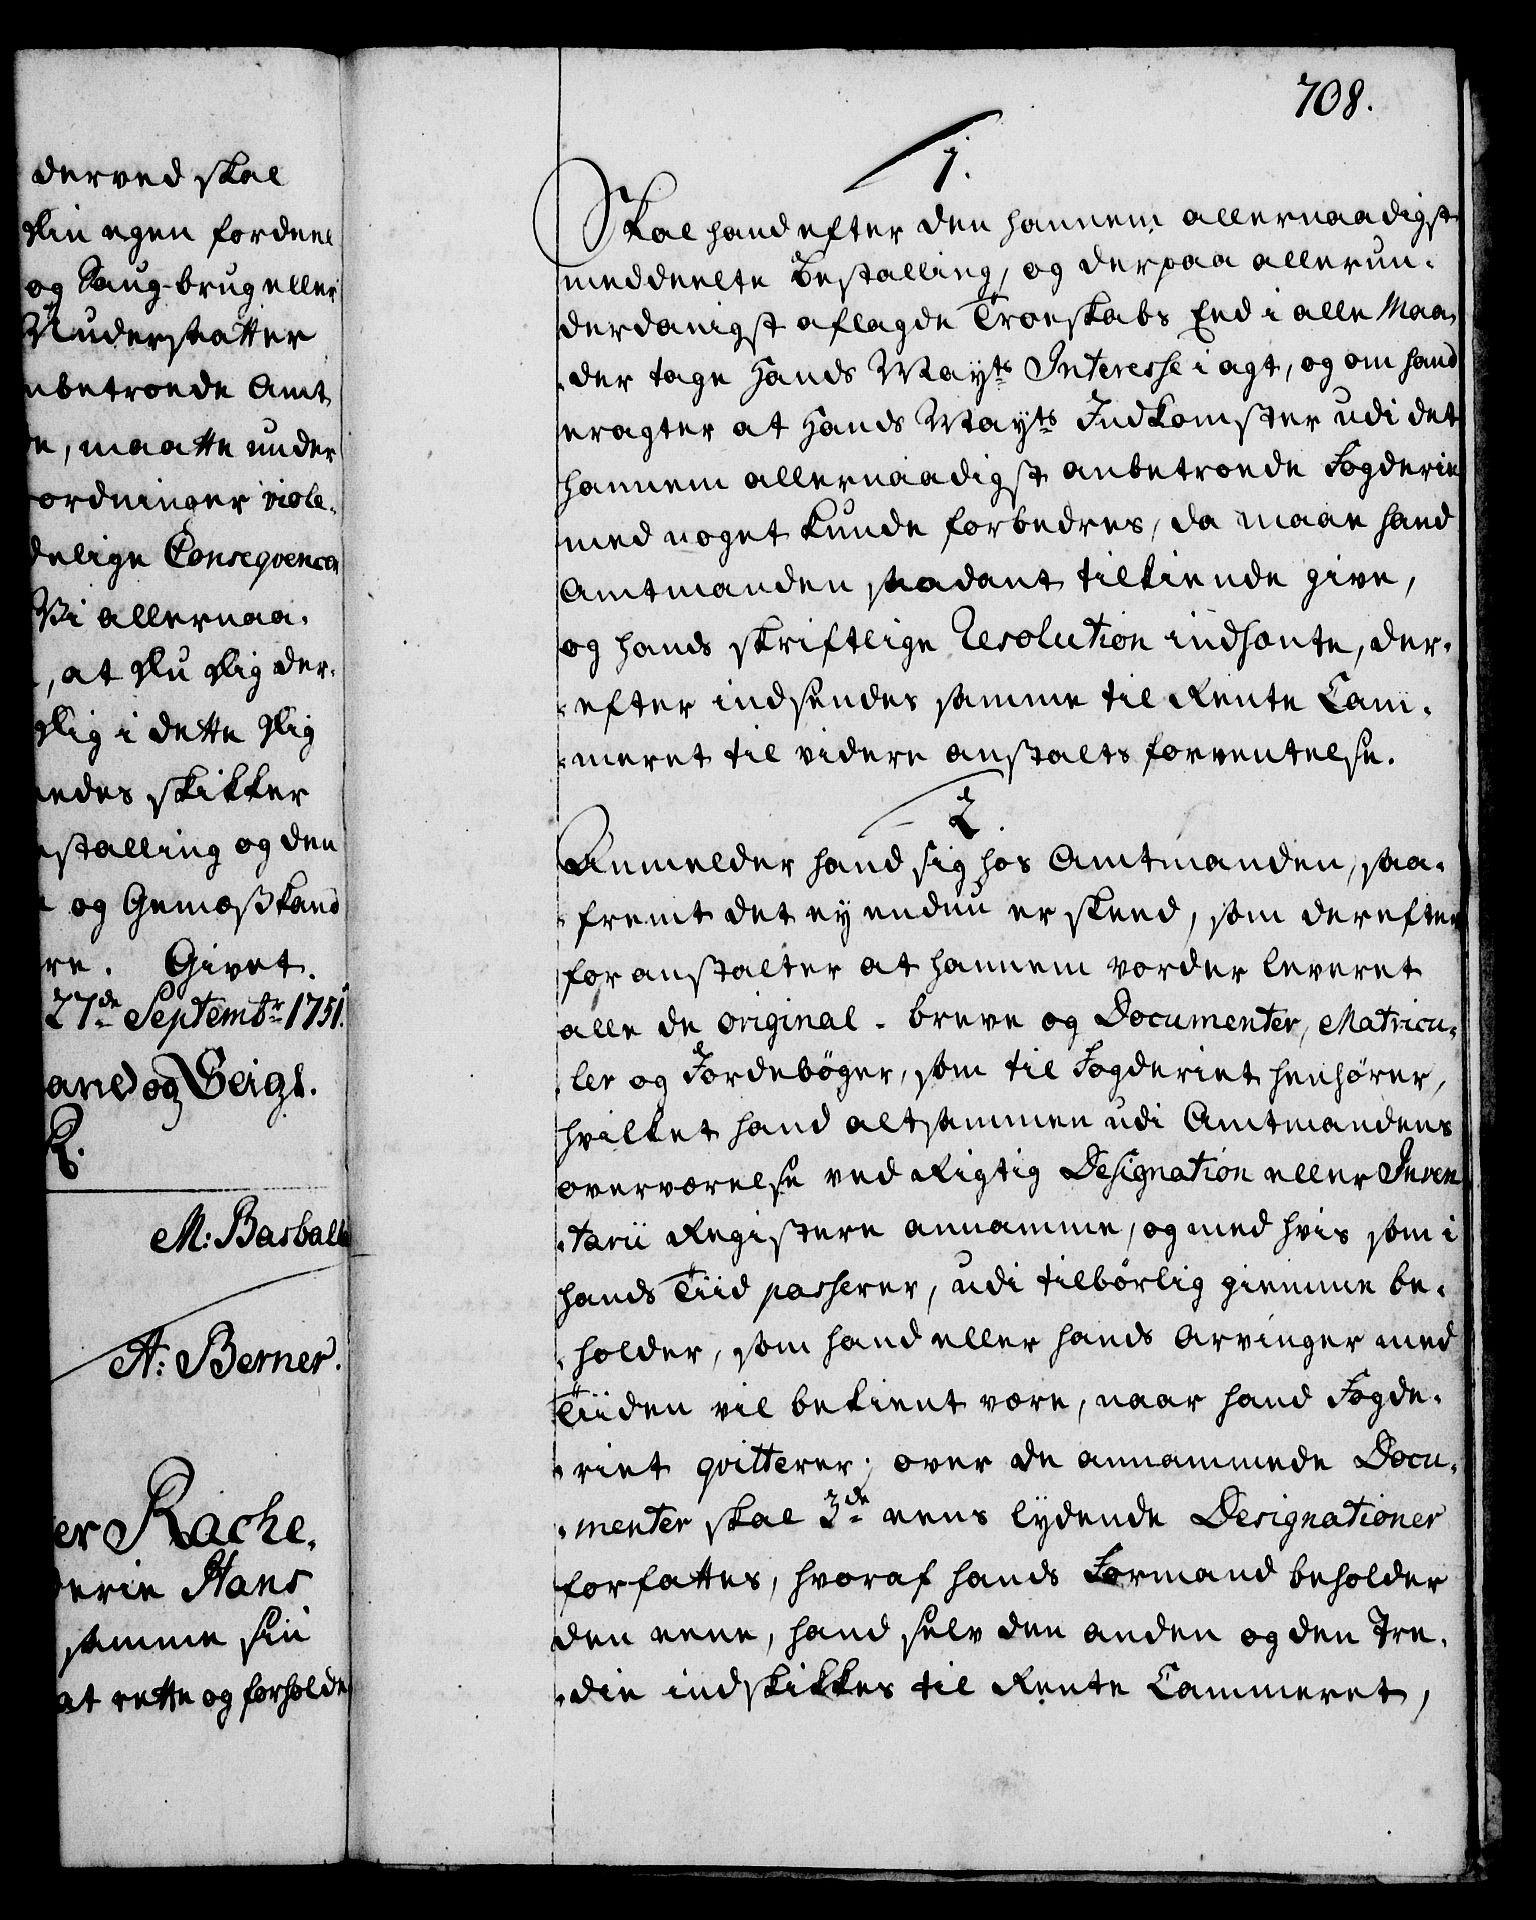 derved skal
Din egen fordeel
og Saug-brug eller
Understatter
nbetroede Amt
e, maatte under
ordninger viole-
delige Conseqvencer
Vi allernaa-
, at Du Dig der-
Dig i dette Dig
edes skikker
estalling og den
og Gemæs kand
re. Givet.
27de Septembr 1751.
and og Seigl.
R.
M: Basballe
A: Berner.
er Rache,
derie Hans
samme sin
at rette og forholde
708.
1.
Skal hand efter den hannem allernaadigst
meddeelte Bestalling, og derpaa allerun-
derdanigst aflagde Troeskabs Eed i alle Maa-
der tage Hands Mayts Interesse i agt, og om hand
eragter at Hands Mayts Indkomster udi det
hannem allernaadigst anbetroede Fogderie
med noget kunde forbedres, da maae hand
Amtmanden saadant tilkiende give,
og hands skriftlige Resolution indhænte, der-
efter indsendes samme til Rente Cam-
meret til videre anstalts forventelse.
2
Anmelder hand sig hos Amtmanden, saa-
fremt det ey endnu er skeed, som derefter
foranstalter at hannem vorder leveret
alle de original-breve og Documenter, Matricu-
ler og Jordebøger, som til Fogderiet henhører,
hvilket hand altsammen udi Amtmandens
overværelse ved Rigtig Designation eller Inven
tarii Registere annamme, og med hvis som i
hands Tiid passerer, udi tilbørlig giemme be-
holder, som hand eller hands Arvinger med
Tiiden vil bekient være, naar hand Fogde-
riet qvitterer; over de annammede Docu-
menter skal 3de eens lydende Designationer
forfattes, hvoraf hands Formand beholder
den eene, hand selv den anden og den Tre-
die indskikkes til Rente Cammeret,